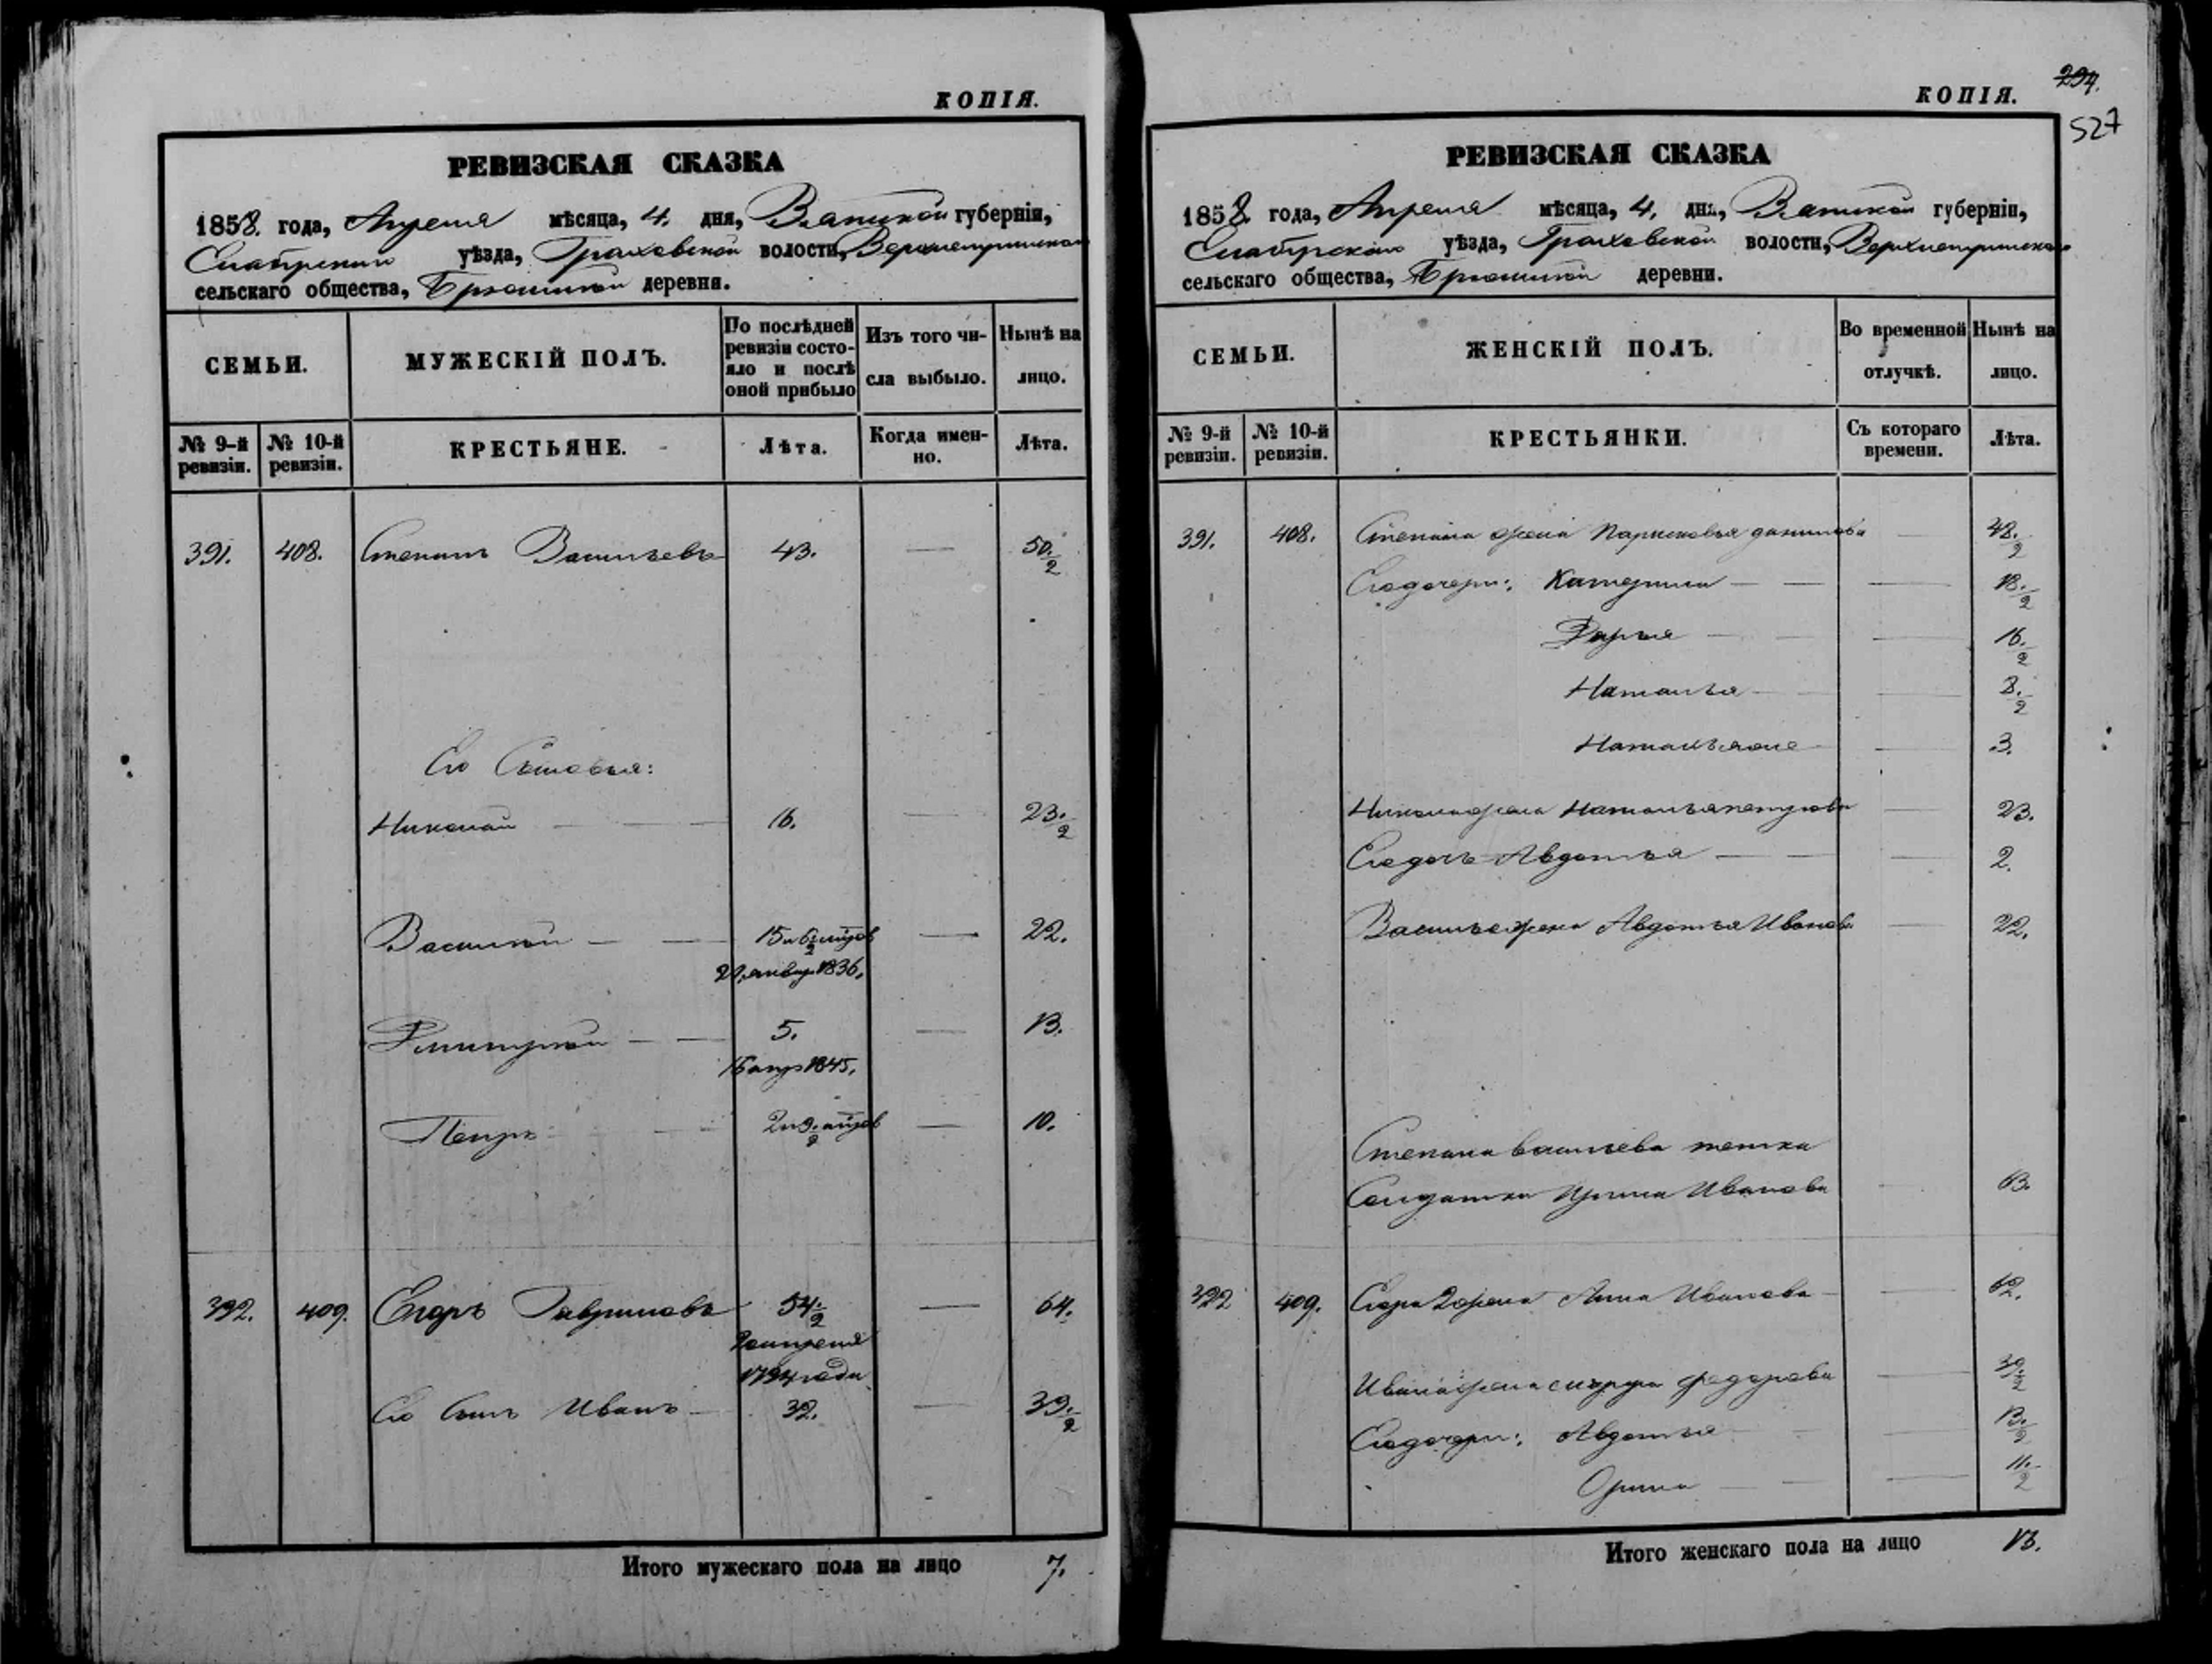 КОПІЯ.
РЕВИЗСКАЯ СКАЗКА
1858. года, Апреля мѣсяца, 4. дня, Вятской губерніи,
уѣзда, Граховской волости,
сельскаго общества, деревня.
СЕМЬИ.
МУЖЕСКІЙ ПОЛЪ.
По послѣдней ревизіи состояло и послѣ оной прибыло
Изъ того числа выбыло.
Нынѣ на лицо.
№ 9-й ревизіи.
№ 10-й ревизіи.
КРЕСТЬЯНЕ.
Лѣта.
Когда именно.
Лѣта.
391. 408. Степанъ Васильевъ 43. — 50.½
Его Сыновья:
Николай — — 16. — 23.½
Василий — — 15 и 6½ мѣцов — 22.
январ 1836.
Дмитрий — — 5. — 13.
16 апр 1845.
Петръ — — — 10.
392. 409. Егоръ Гавриловъ 54.½ — 64.
апреля
1794 года
Его Сынъ Иванъ — 32. — 39.½
Итого мужескаго пола на лицо 7.
КОПІЯ.
294.
527
РЕВИЗСКАЯ СКАЗКА
1858 года, Апреля мѣсяца, 4. дня, Вятской губерніи,
уѣзда, Граховской волости,
сельскаго общества, деревни.
СЕМЬИ.
ЖЕНСКІЙ ПОЛЪ.
Во временной отлучкѣ.
Нынѣ на лицо.
№ 9-й ревизіи.
№ 10-й ревизіи.
КРЕСТЬЯНКИ.
Съ котораго времени.
Лѣта.
391. 408. Степана жена Парасковья данилова — 48.½
Его дочери: Катерина — — — 18.½
Дарья — — — 16.½
Наталья — — — 8.½
Наталья — 3.
Николая жена Наталья петрова — 23.
Его дочь Авдотья — — — 2.
Василья жена Авдотья Иванова — 22.
Степана васильева тетка
Солдатка Ирина Иванова — 63.
392 409. Егора жена Анна Иванова — 62.
Ивана жена федорова — 39.½
Его дочери: Авдотья — — 13.½
Орина — — — 11.½
Итого женскаго пола на лицо 13.